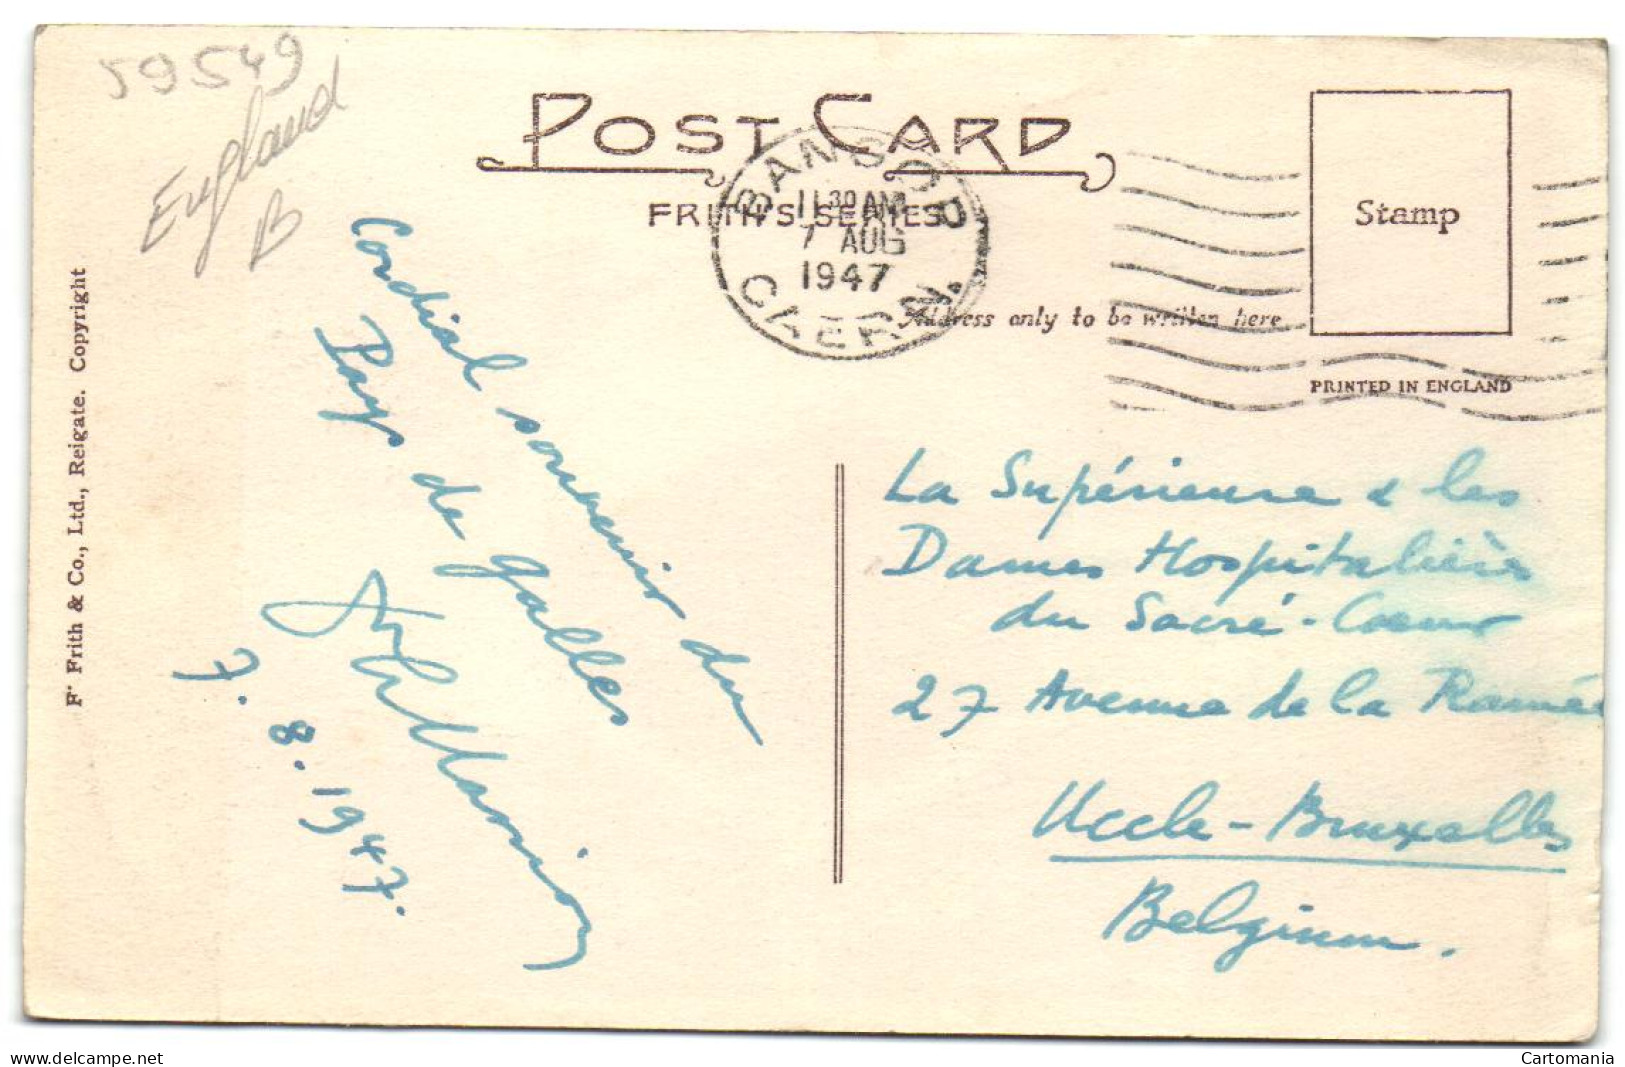 59549
England
B
POST CARD
FRITH'S SERIES
BANGOR
11 30 AM
7 AUG
1947
CAERN.
Stamp
Address only to be written here
PRINTED IN ENGLAND
F. Frith & Co., Ltd., Reigate. Copyright
Cordial souvenir du
Pays de Galles
7.8.1947.
La Supérieure & les
Dames Hospitalières
du Sacré-Cœur
27 Avenue de la Ramée
Uccle-Bruxelles
Belgium.
delcampe.net
Cartomania